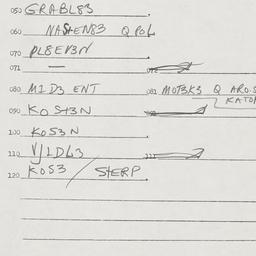 050 GRABL83
060 NASHEN83 Q POL
070 PL8EV3N
071 —
080 M1D3 ENT 081 MOT3K3 Q ARO.S
KATO
090 KOSH3N
100 KOS3N
110 VJLDL3 111
120 KOS3 / SHERP